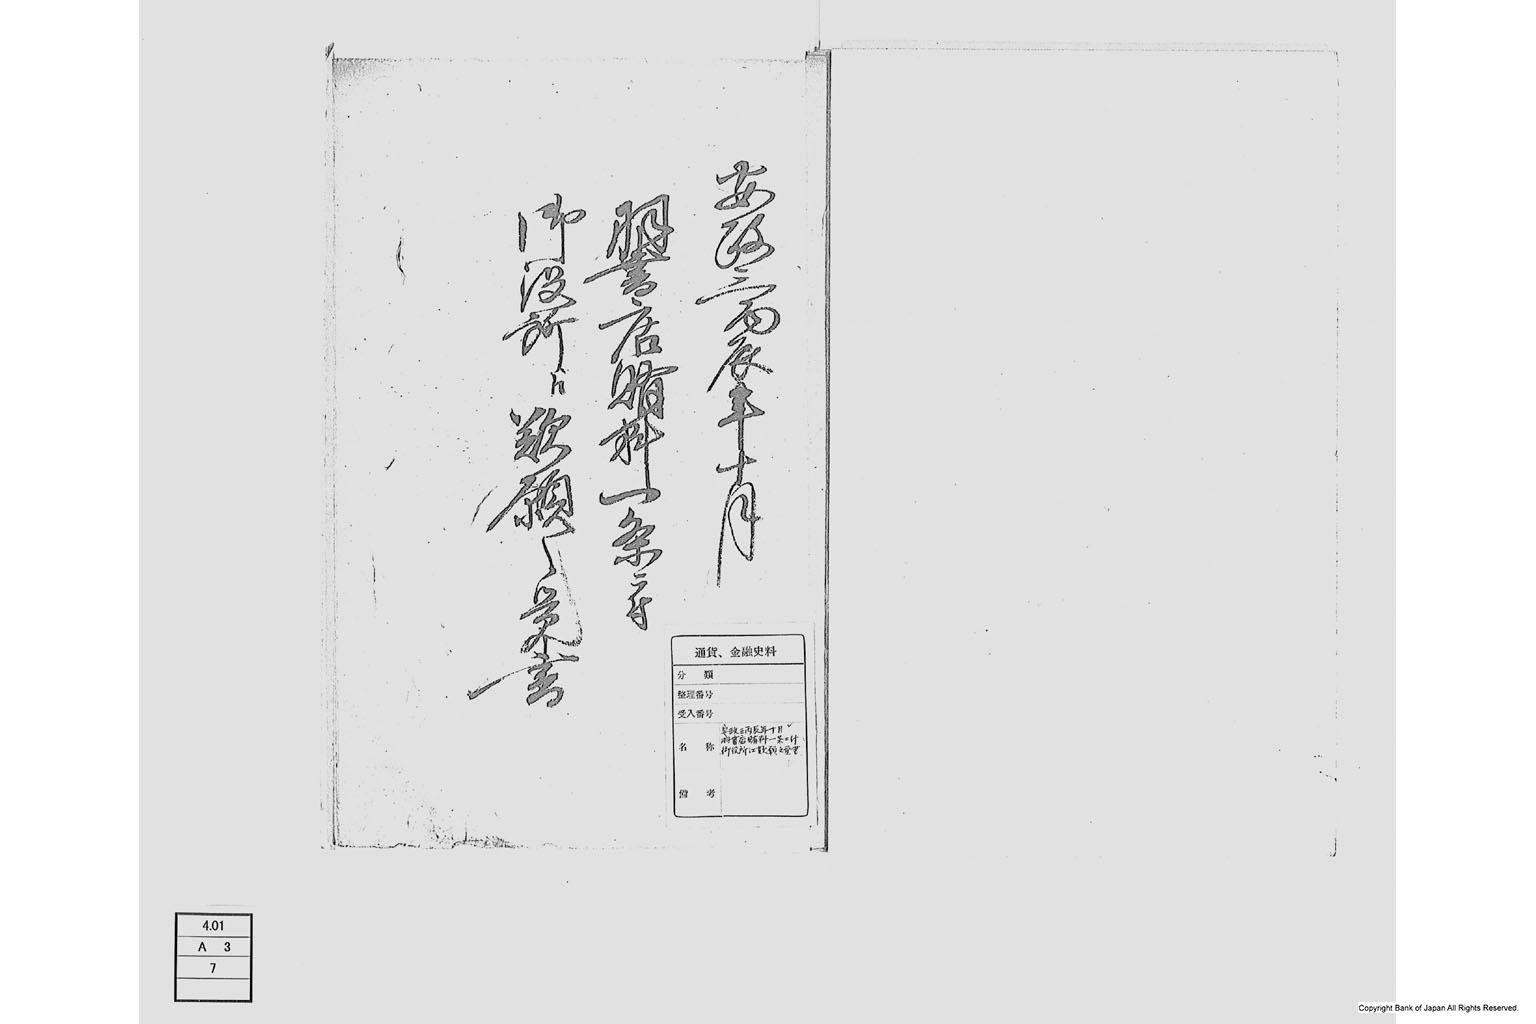 安政三丙辰年十月
羽書店賄料一条ニ付
御役所江歎願之覚書
通貨、金融史料
分 類
整理番号
受入番号
名 称
安政三丙辰年十月
羽書店賄料一条ニ付
御役所江歎願之覚書
備 考
4.01
A 3
7
Copyright Bank of Japan All Rights Reserved.